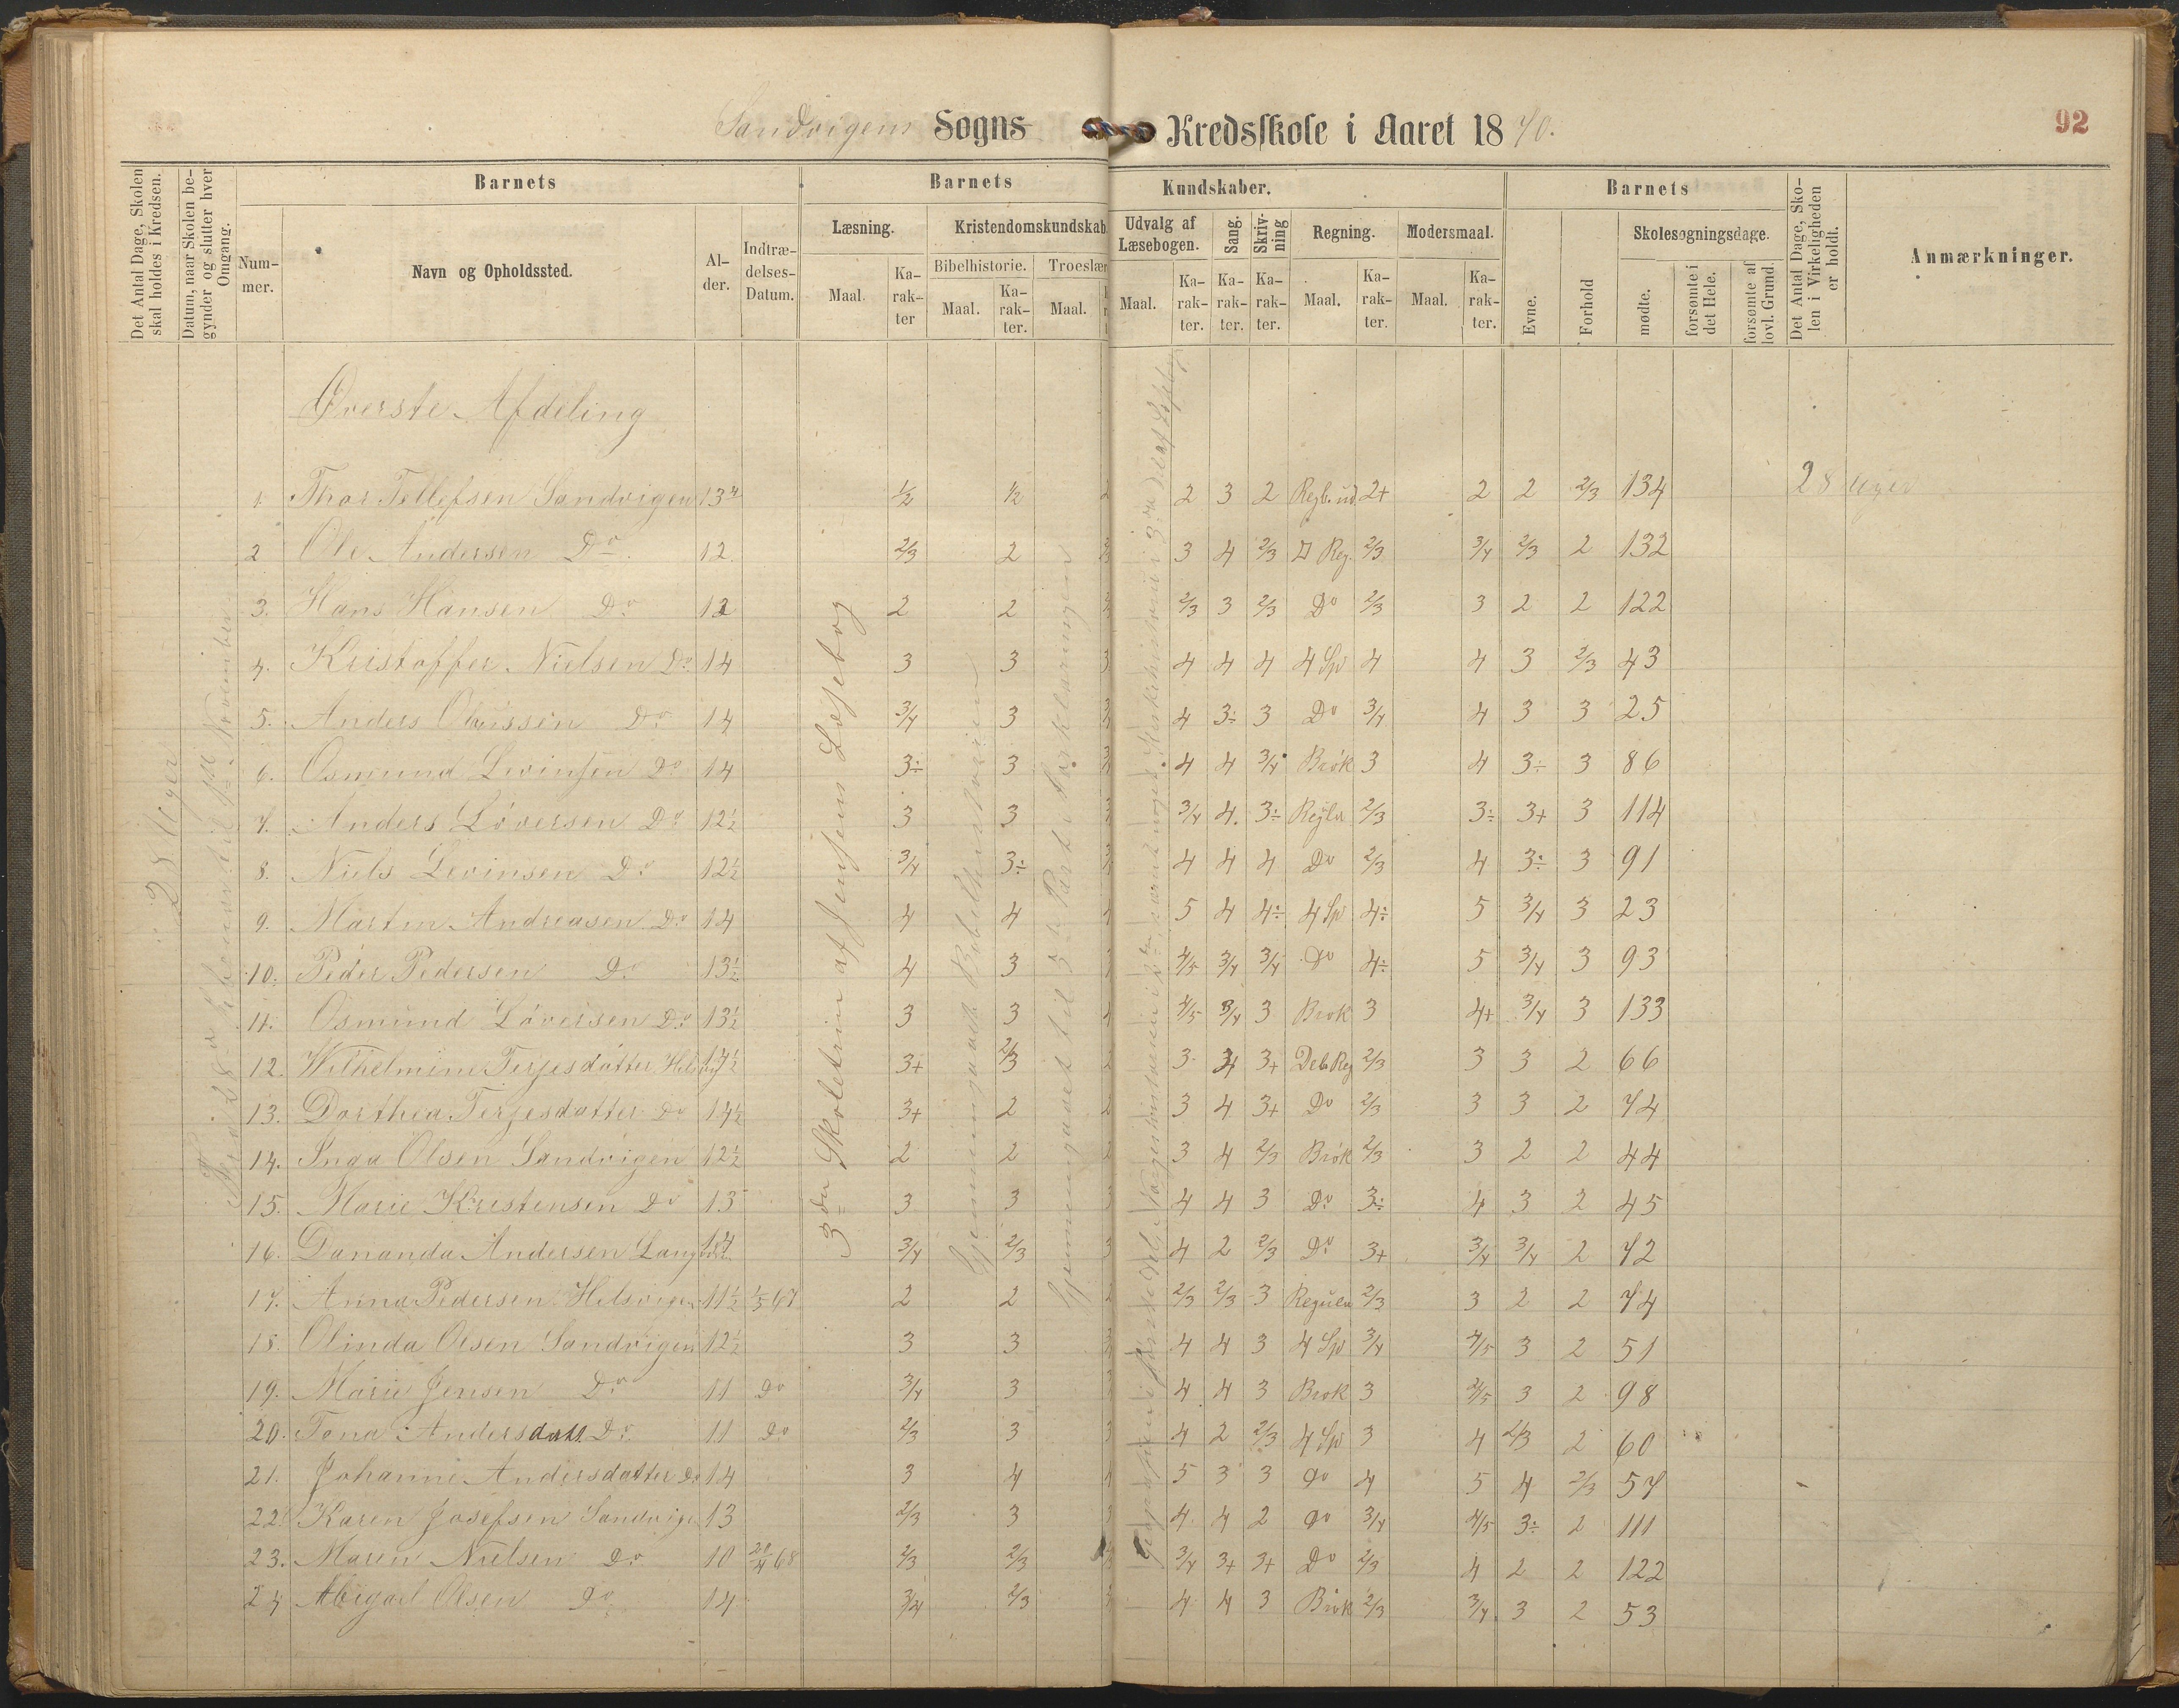 Sandvigens Sogns Kredsskole i Aaret 1870.
92
Det Antal Dage, Skolen skal holdes i Kredsen.
Datum, naar Skolen begynder og slutter hver Omgang.
Barnets
Nummer.
Navn og Opholdssted.
Alder.
Indtrædelses-Datum.
Barnets
Læsning.
Maal.
Karakter
Kristendomskundskab
Bibelhistorie.
Maal.
Karakter.
Troeslær
Maal.
Kundskaber.
Udvalg af Læsebogen.
Maal.
Karakter.
Sang.
Karakter.
Skrivning
Karakter.
Regning.
Maal.
Karakter.
Modersmaal.
Maal.
Karakter.
Barnets
Evne.
Forhold
Skolesøgningsdage.
mødte.
forsømte i det Hele.
forsømte af lovl. Grund.
Det Antal Dage, Skolen i Virkeligheden er holdt.
Anmærkninger.
28 Uger
3die Skoletrin af Jensens Læsebog
Gjennemgaaet Bibelhistorien
Øverste Afdeling
1. Thor Tellefsen Sandvigen 13 1/2 1/2 2 2 3 2 Regb. ud 2+ 2 2 2/3 134 28 Uger
2 Ole Andersen Do 12 2/3 2 3 4 2/3 Reg. 2/3 3/4 2/3 2 132
3. Hans Hansen Do 12 2 2 2/3 3 2/3 Do 2/3 3 2 2 122
4. Kristoffer Nielsen Do 14 3 3 3 4 4 4 4 Sp 4 4 3 2/3 43
5. Anders Olaussen Do 14 3/4 3 4 3÷ 3 Do 3/4 4 3 3 25
6. Osmund Levinsen Do 14 3÷ 3 4 4 3/4 Brøk 3 4 3÷ 3 86
7. Anders Løversen Do 12½ 3 3 3/4 4 3÷ Regla 2/3 3÷ 3+ 3 114
8. Niels Levinsen Do 12½ 3/4 3÷ 4 4 4 Do 2/3 4 3÷ 3 91
9. Martin Andreasen Do 14 4 4 4 5 4 4÷ 4 Sp 4÷ 5 3/4 3 23
10. Peder Pedersen Do 13½ 4 3 4/5 3/4 3/4 Do 4÷ 5 3/4 3 93
11. Osmund Løversen Do 13½ 3 3 4 4/5 3/4 3 Brøk 3 4+ 3/4 3 133
12. Wilhelmine Terjesdatter 3+ 2/3 2 3 4 3+ Deb Reg 2/3 3 3 2 66
13. Dorthea Terjesdatter Do 14½ 3+ 2 2 3 4 3+ Do 2/3 3 3 2 74
14. Inga Olsen Sandvigen 12½ 2 2 2 3 4 2/3 Brøk 2/3 3 2 2 44
15. Marie Kristensen Do 13 3 3 3 4 4 3 Do 3÷ 4 3 2 45
16. Dananda Andersen 14 3/4 2/3 3 4 2 2/3 Do 3+ 3/4 3/4 2 72
17. Anna Pedersen Helsvigen 11½ 1/5 67 2 2 2 2/3 2/3 3 Regula 2/3 3 2 2 74
18. Olinda Olsen Sandvigen 12½ 3 3 4 4 3 4 Sp 3/4 4/5 3 2 51
19. Marie Jensen Do 11 Do 3/4 3 4 4 3 Brøk 3 4/5 3 2 98
20. Tona Andersdatt. Do 11 Do 2/3 3 3 4 2 2/3 4 Sp 3 4 2/3 2 60
21. Johanne Andersdatter Do 14 3 4 4 5 3 3 Do 4 5 4 2/3 57
22. Karen Josefsen Sandvige 13 2/3 3 3 4 4 2 Do 3/4 4/5 3÷ 2 111
23. Maren Nielsen Do 10 20/4 68 2/3 2/3 3/4 3+ 3+ Do 2/3 4 2 2 122
24 Abigael Olsen Do 14 3/4 2/3 4 4 3 Brøk 2/3 3/4 3 2 53